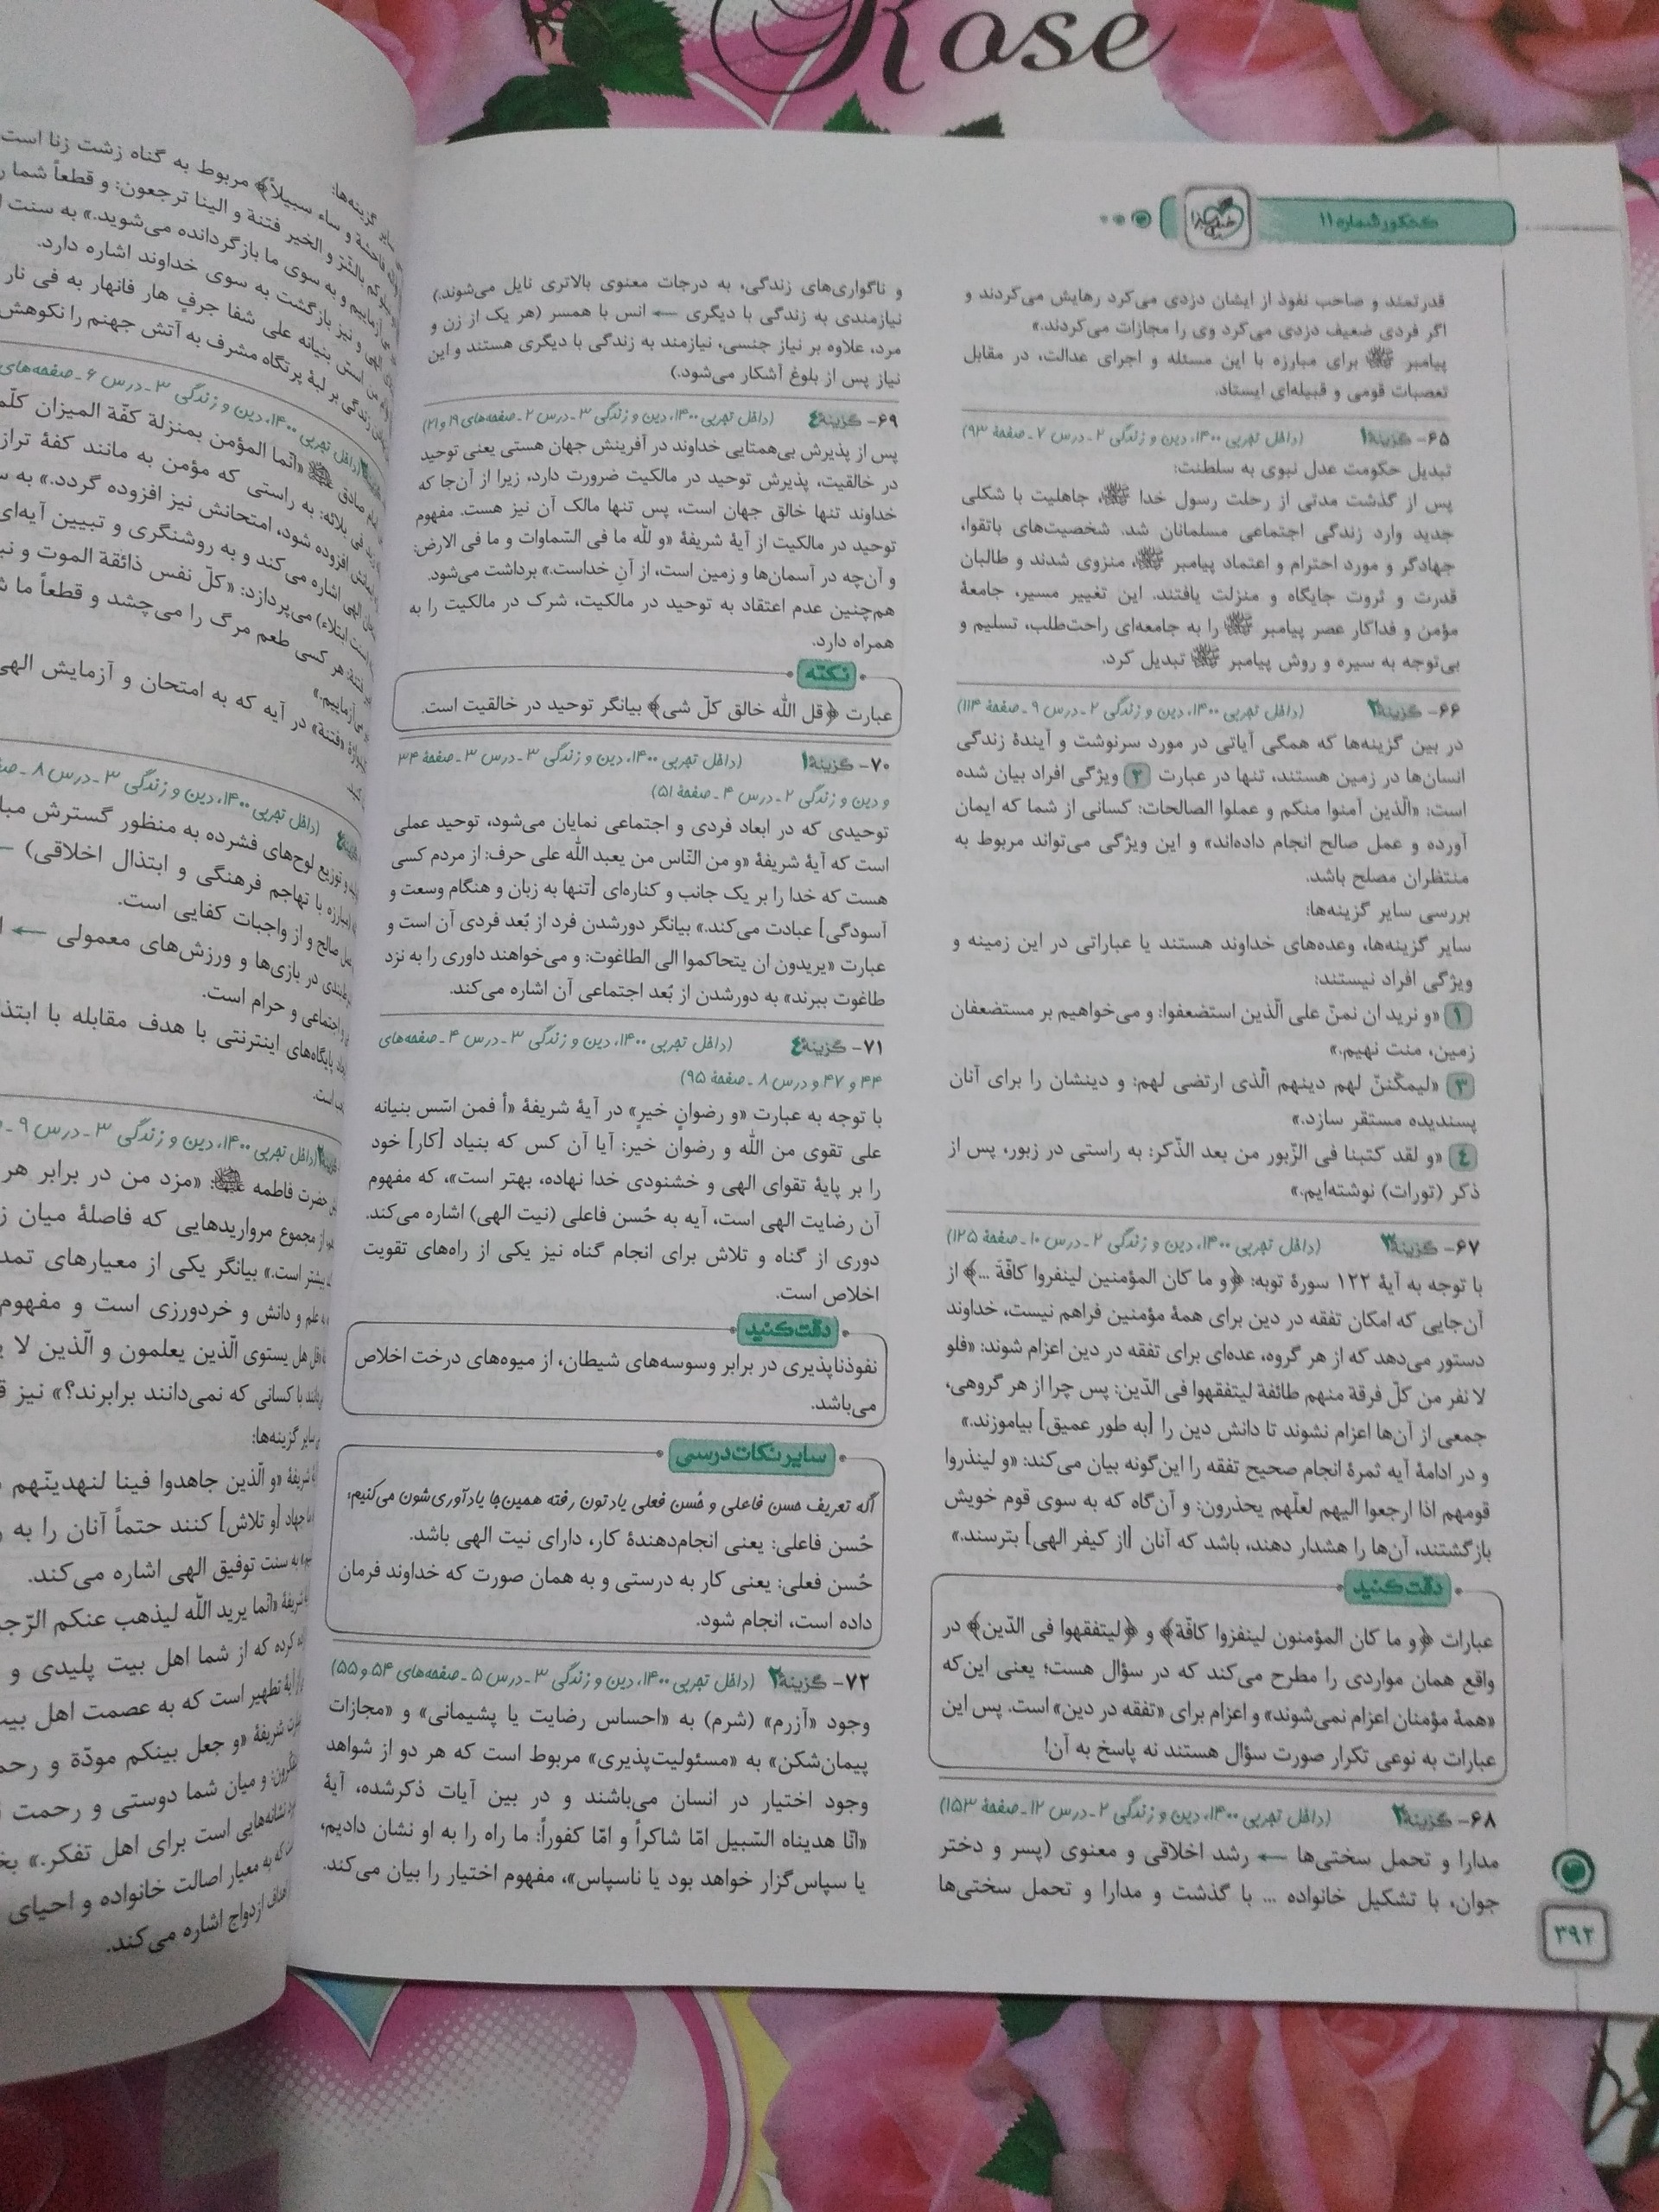 Rose
کنکور شماره ۱۱
قدرتمند و صاحب نفوذ از ایشان دزدی می‌کرد رهایش می‌کردند و
اگر فردی ضعیف دزدی می‌کرد وی را مجازات می‌کردند.»
پیامبر ﷺ برای مبارزه با این مسئله و اجرای عدالت، در مقابل
تعصبات قومی و قبیله‌ای ایستاد.
۶۵- گزینهٔ ۱ (داخل تجربی ۱۴۰۰، دین و زندگی ۲ـ درس ۷ـ صفحهٔ ۹۳)
تبدیل حکومت عدل نبوی به سلطنت:
پس از گذشت مدتی از رحلت رسول خدا ﷺ، جاهلیت با شکلی
جدید وارد زندگی اجتماعی مسلمانان شد. شخصیت‌های باتقوا،
جهادگر و مورد احترام و اعتماد پیامبر ﷺ، منزوی شدند و طالبان
قدرت و ثروت جایگاه و منزلت یافتند. این تغییر مسیر، جامعهٔ
مؤمن و فداکار عصر پیامبر ﷺ را به جامعه‌ای راحت‌طلب، تسلیم و
بی‌توجه به سیره و روش پیامبر ﷺ تبدیل کرد.
۶۶- گزینهٔ ۲ (داخل تجربی ۱۴۰۰، دین و زندگی ۲ـ درس ۹ـ صفحهٔ ۱۱۴)
در بین گزینه‌ها که همگی آیاتی در مورد سرنوشت و آیندهٔ زندگی
انسان‌ها در زمین هستند، تنها در عبارت ۲ ویژگی افراد بیان شده
است: «الّذین آمنوا منکم و عملوا الصالحات: کسانی از شما که ایمان
آورده و عمل صالح انجام داده‌اند» و این ویژگی می‌تواند مربوط به
منتظران مصلح باشد.
بررسی سایر گزینه‌ها:
سایر گزینه‌ها، وعده‌های خداوند هستند یا عباراتی در این زمینه و
ویژگی افراد نیستند:
۱ «و نرید ان نمنّ علی الّذین استضعفوا: و می‌خواهیم بر مستضعفان
زمین، منت نهیم.»
۳ «لیمکّننّ لهم دینهم الّذی ارتضی لهم: و دینشان را برای آنان
پسندیده مستقر سازد.»
۴ «و لقد کتبنا فی الزّبور من بعد الذّکر: به راستی در زبور، پس از
ذکر (تورات) نوشته‌ایم.»
۶۷- گزینهٔ ۳ (داخل تجربی ۱۴۰۰، دین و زندگی ۲ـ درس ۱۰ـ صفحهٔ ۱۲۵)
با توجه به آیهٔ ۱۲۲ سورهٔ توبه: ﴿و ما کان المؤمنین لینفروا کافّة ...﴾ از
آن‌جایی که امکان تفقه در دین برای همهٔ مؤمنین فراهم نیست، خداوند
دستور می‌دهد که از هر گروه، عده‌ای برای تفقه در دین اعزام شوند: «فلو
لا نفر من کلّ فرقة منهم طائفة لیتفقهوا فی الدّین: پس چرا از هر گروهی،
جمعی از آن‌ها اعزام نشوند تا دانش دین را [به طور عمیق] بیاموزند.»
و در ادامهٔ آیه ثمرهٔ انجام صحیح تفقه را این‌گونه بیان می‌کند: «و لینذروا
قومهم اذا ارجعوا الیهم لعلّهم یحذرون: و آن‌گاه که به سوی قوم خویش
بازگشتند، آن‌ها را هشدار دهند، باشد که آنان [از کیفر الهی] بترسند.»
دقت کنید
عبارات ﴿و ما کان المؤمنون لینفزوا کافّة﴾ و ﴿لیتفقهوا فی الدّین﴾ در
واقع همان مواردی را مطرح می‌کند که در سؤال هست؛ یعنی این‌که
«همهٔ مؤمنان اعزام نمی‌شوند» و اعزام برای «تفقه در دین» است. پس این
عبارات به نوعی تکرار صورت سؤال هستند نه پاسخ به آن!
۶۸- گزینهٔ ۲ (داخل تجربی ۱۴۰۰، دین و زندگی ۲ـ درس ۱۲ـ صفحهٔ ۱۵۳)
مدارا و تحمل سختی‌ها ← رشد اخلاقی و معنوی (پسر و دختر
جوان، با تشکیل خانواده ... با گذشت و مدارا و تحمل سختی‌ها
۳۹۲
و ناگواری‌های زندگی، به درجات معنوی بالاتری نایل می‌شوند.)
نیازمندی به زندگی با دیگری ← انس با همسر (هر یک از زن و
مرد، علاوه بر نیاز جنسی، نیازمند به زندگی با دیگری هستند و این
نیاز پس از بلوغ آشکار می‌شود.)
۶۹- گزینهٔ ۴ (داخل تجربی ۱۴۰۰، دین و زندگی ۳ـ درس ۲ـ صفحه‌های ۱۹ و ۲۱)
پس از پذیرش بی‌همتایی خداوند در آفرینش جهان هستی یعنی توحید
در خالقیت، پذیرش توحید در مالکیت ضرورت دارد، زیرا از آن‌جا که
خداوند تنها خالق جهان است، پس تنها مالک آن نیز هست. مفهوم
توحید در مالکیت از آیهٔ شریفهٔ «و للّه ما فی السّماوات و ما فی الارض:
و آن‌چه در آسمان‌ها و زمین است، از آنِ خداست.» برداشت می‌شود.
هم‌چنین عدم اعتقاد به توحید در مالکیت، شرک در مالکیت را به
همراه دارد.
نکته
عبارت ﴿قل اللّه خالق کلّ شی﴾ بیانگر توحید در خالقیت است.
۷۰- گزینهٔ ۱ (داخل تجربی ۱۴۰۰، دین و زندگی ۳ـ درس ۳ـ صفحهٔ ۳۴
و دین و زندگی ۲ـ درس ۴ـ صفحهٔ ۵۱)
توحیدی که در ابعاد فردی و اجتماعی نمایان می‌شود، توحید عملی
است که آیهٔ شریفهٔ «و من النّاس من یعبد اللّه علی حرف: از مردم کسی
هست که خدا را بر یک جانب و کناره‌ای [تنها به زبان و هنگام وسعت و
آسودگی] عبادت می‌کند.» بیانگر دورشدن فرد از بُعد فردی آن است و
عبارت «یریدون ان یتحاکموا الی الطاغوت: و می‌خواهند داوری را به نزد
طاغوت ببرند» به دورشدن از بُعد اجتماعی آن اشاره می‌کند.
۷۱- گزینهٔ ۴ (داخل تجربی ۱۴۰۰، دین و زندگی ۳ـ درس ۴ـ صفحه‌های
۴۴ و ۴۷ و درس ۸ ـ صفحهٔ ۹۵)
با توجه به عبارت «و رضوانٍ خیرٍ» در آیهٔ شریفهٔ «أ فمن اسّس بنیانه
علی تقوی من اللّه و رضوان خیر: آیا آن کس که بنیاد [کار] خود
را بر پایهٔ تقوای الهی و خشنودی خدا نهاده، بهتر است»، که مفهوم
آن رضایت الهی است، آیه به حُسن فاعلی (نیت الهی) اشاره می‌کند.
دوری از گناه و تلاش برای انجام گناه نیز یکی از راه‌های تقویت
اخلاص است.
دقت کنید
نفوذناپذیری در برابر وسوسه‌های شیطان، از میوه‌های درخت اخلاص
می‌باشد.
سایر نکات درسی
اگه تعریف حُسن فاعلی و حُسن فعلی یادتون رفته همین‌جا یادآوری‌شون می‌کنیم:
حُسن فاعلی: یعنی انجام‌دهندهٔ کار، دارای نیت الهی باشد.
حُسن فعلی: یعنی کار به درستی و به همان صورت که خداوند فرمان
داده است، انجام شود.
۷۲- گزینهٔ ۲ (داخل تجربی ۱۴۰۰، دین و زندگی ۳ـ درس ۵ـ صفحه‌های ۵۴ و ۵۵)
وجود «آزرم» (شرم) به «احساس رضایت یا پشیمانی» و «مجازات
پیمان‌شکن» به «مسئولیت‌پذیری» مربوط است که هر دو از شواهد
وجود اختیار در انسان می‌باشند و در بین آیات ذکرشده، آیهٔ
«انّا هدیناه السّبیل امّا شاکراً و امّا کفوراً: ما راه را به او نشان دادیم،
یا سپاس‌گزار خواهد بود یا ناسپاس»، مفهوم اختیار را بیان می‌کند.
سایر گزینه‌ها:
فاحشة و ساء سبیلاً﴾ مربوط به گناه زشت زنا است
بالشّرّ و الخیر فتنة و الینا ترجعون: و قطعاً شما
می‌آزماییم و به سوی ما بازگردانده می‌شوید.» به سنت
و نیز بازگشت به سوی خداوند اشاره دارد.
بنیانه علی شفا جرفٍ هار فانهار به فی نار
زندگی بر لبهٔ پرتگاه مشرف به آتش جهنم را نکوهش
(داخل تجربی ۱۴۰۰، دین و زندگی ۳ـ درس ۶ـ صفحه‌های
صادق «انّما المؤمن بمنزلة کفّة المیزان کلّما
فی بلائه: به راستی که مؤمن به مانند کفهٔ ترازو
افزوده شود، امتحانش نیز افزوده گردد.» به
الهی اشاره می‌کند و به روشنگری و تبیین آیه‌ای
ابتلاء) می‌پردازد: «کلّ نفس ذائقة الموت و
فتنة: هر کسی طعم مرگ را می‌چشد و قطعاً ما
می‌آزماییم.»
«فتنة» در آیه که به امتحان و آزمایش الهی
(داخل تجربی ۱۴۰۰، دین و زندگی ۳ـ درس ۸ـ
و توزیع لوح‌های فشرده به منظور گسترش
مبارزه با تهاجم فرهنگی و ابتذال اخلاقی) ←
صالح و از واجبات کفایی است.
در بازی‌ها و ورزش‌های معمولی ←
اجتماعی و حرام است.
پایگاه‌های اینترنتی با هدف مقابله با
است.
(داخل تجربی ۱۴۰۰، دین و زندگی ۳ـ درس ۹ـ
حضرت فاطمه: «مزد من در برابر هر
از مجموع مرواریدهایی که فاصلهٔ میان
بیشتر است.» بیانگر یکی از معیارهای
علم و دانش و خردورزی است و مفهوم
هل یستوی الّذین یعلمون و الّذین لا
با کسانی که نمی‌دانند برابرند؟» نیز
سایر گزینه‌ها:
شریفهٔ «و الّذین جاهدوا فینا لنهدینّهم
جهاد [و تلاش] کنند حتماً آنان را به
به سنت توفیق الهی اشاره می‌کند.
شریفهٔ «انّما یرید اللّه لیذهب عنکم
کرده که از شما اهل بیت پلیدی و
آیهٔ تطهیر است که به عصمت اهل
شریفهٔ «و جعل بینکم مودّة و
و میان شما دوستی و رحمت
نشانه‌هایی است برای اهل تفکر.»
که به معیار اصالت خانواده و احیای
اهداف ازدواج اشاره می‌کند.